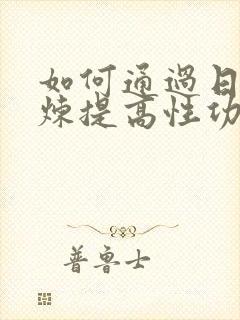 如何通過日
煉提高性功
普魯士